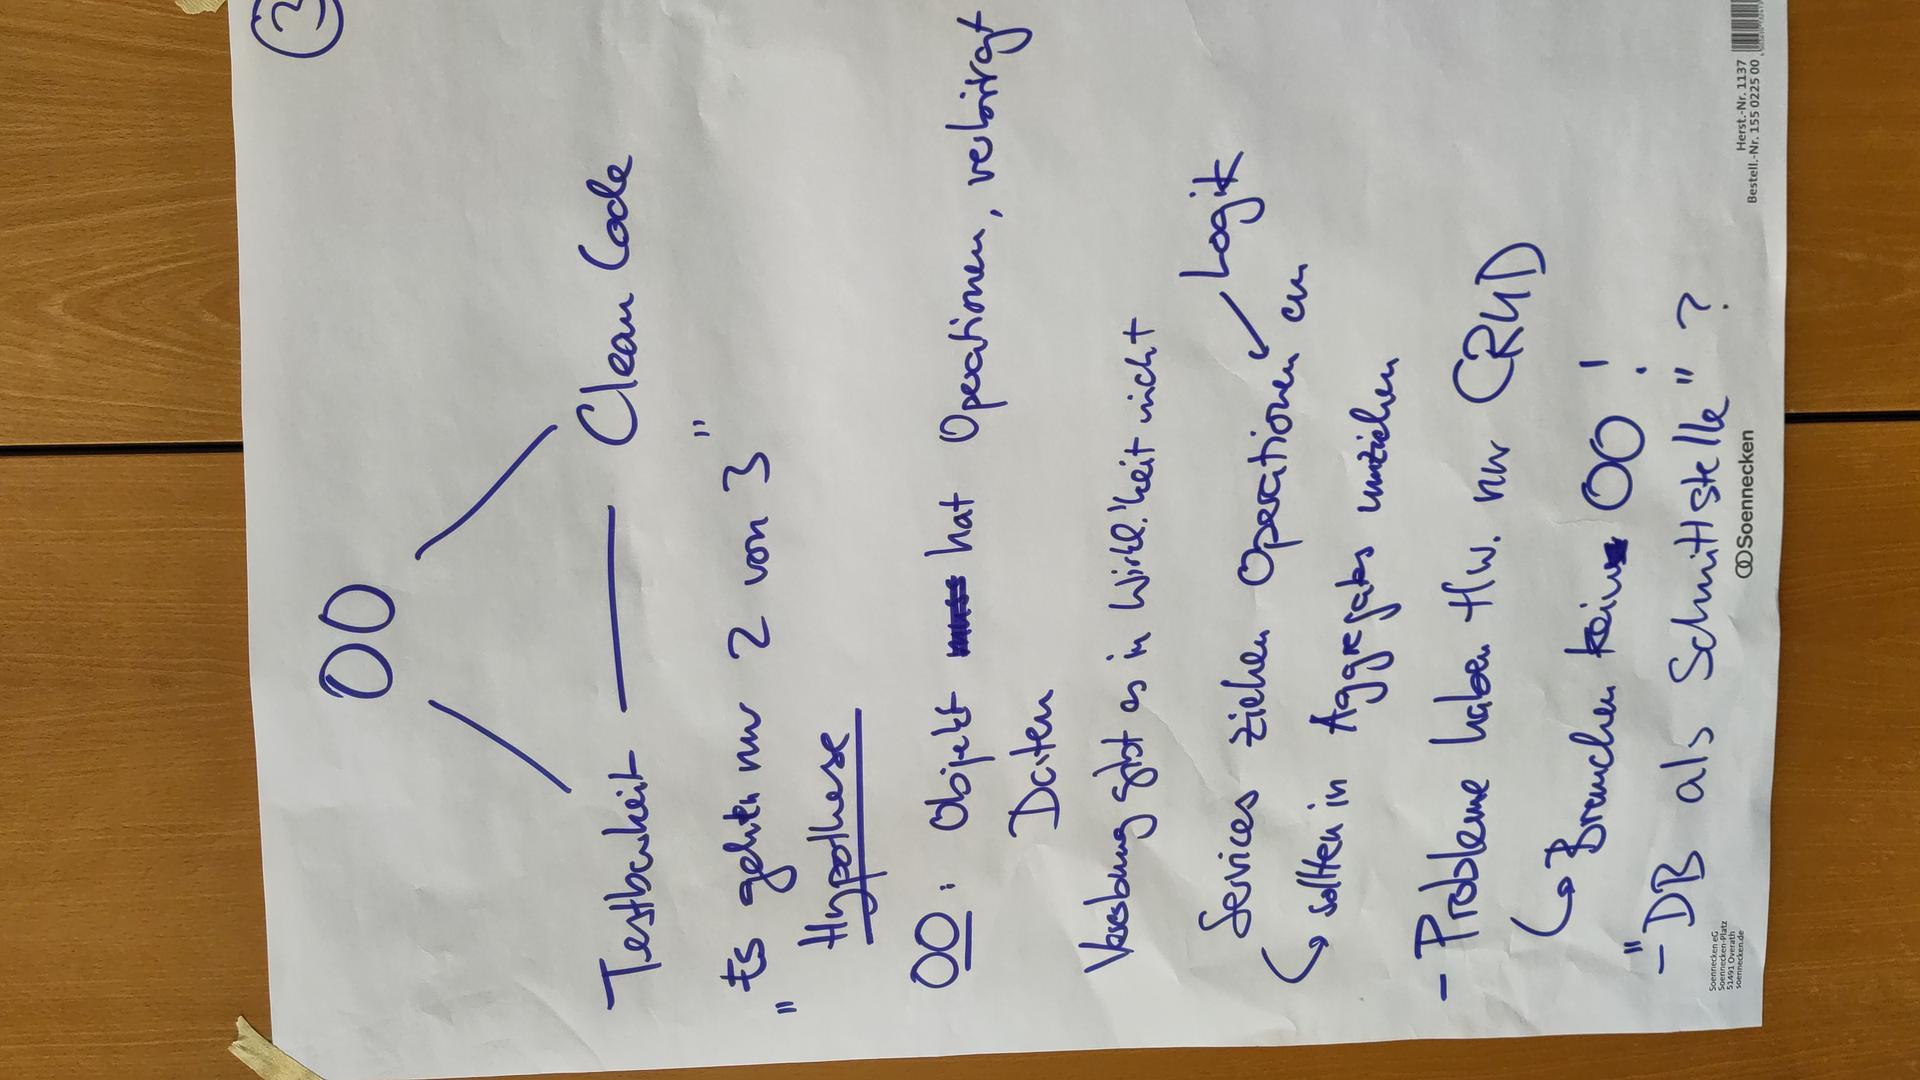 3
OO
Testbarkeit — Clean Code
"Es gehen nur 2 von 3"
Hypothese
OO: Objekt hat Operationen, verbirgt
Daten
Vererbung gibt es in Wirkl.'keit nicht
Services ziehen Operationen an ← Logik
↳ sollten in Aggregates umziehen
- Probleme haben tlw. nur CRUD
↳ Brauchen kein OO!
- "DB als Schnittstelle"?
Soennecken
Soennecken eG
Soennecken-Platz
51491 Overath
soennecken.de
Herst.-Nr. 1137
Bestell.-Nr. 155 0225 00